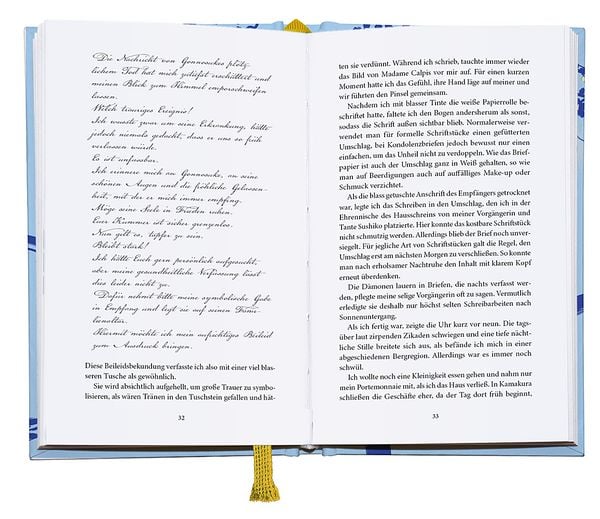 Die Nachricht von Gonnosukes plötz-
lichem Tod hat mich zutiefst erschüttert und
meinen Blick zum Himmel emporschweifen
lassen.
Welch trauriges Ereignis!
Ich wusste zwar um seine Erkrankung, hätte
jedoch niemals gedacht, dass er uns so früh
verlassen würde.
Es ist unfassbar.
Ich erinnere mich an Gonnosuke, an seine
schönen Augen und die fröhliche Gelassen-
heit, mit der er mich immer empfing.
Möge seine Seele in Frieden ruhen.
Euer Kummer ist sicher grenzenlos.
Nun gilt es, tapfer zu sein.
Bleibt stark!
Ich hätte Euch gern persönlich aufgesucht,
aber meine gesundheitliche Verfassung lässt
dies leider nicht zu.
Dafür nehmt bitte meine symbolische Gabe
in Empfang und legt sie auf seinen Fami-
lienaltar.
Hiermit möchte ich mein aufrichtiges Beileid
zum Ausdruck bringen.
Diese Beileidsbekundung verfasste ich also mit einer viel blas-
seren Tusche als gewöhnlich.
Sie wird absichtlich aufgehellt, um große Trauer zu symbo-
lisieren, als wären Tränen in den Tuschstein gefallen und hät-
32
ten sie verdünnt. Während ich schrieb, tauchte immer wieder
das Bild von Madame Calpis vor mir auf. Für einen kurzen
Moment hatte ich das Gefühl, ihre Hand läge auf meiner und
wir führten den Pinsel gemeinsam.
Nachdem ich mit blasser Tinte die weiße Papierrolle be-
schriftet hatte, faltete ich den Bogen andersherum als sonst,
sodass die Schrift außen sichtbar blieb. Normalerweise ver-
wendet man für formelle Schriftstücke einen gefütterten
Umschlag, bei Kondolenzbriefen jedoch bewusst nur einen
einfachen, um das Unheil nicht zu verdoppeln. Wie das Brief-
papier ist auch der Umschlag ganz in Weiß gehalten, so wie
man auf Beerdigungen auch auf auffälliges Make-up oder
Schmuck verzichtet.
Als die blass getuschte Anschrift des Empfängers getrocknet
war, legte ich das Schreiben in den Umschlag, den ich in der
Ehrennische des Hausschreins von meiner Vorgängerin und
Tante Sushiko platzierte. Hier konnte das kostbare Schriftstück
nicht schmutzig werden. Allerdings blieb der Brief noch unver-
siegelt. Für jegliche Art von Schriftstücken galt die Regel, den
Umschlag erst am nächsten Morgen zu verschließen. So konnte
man nach erholsamer Nachtruhe den Inhalt mit klarem Kopf
erneut überdenken.
Die Dämonen lauern in Briefen, die nachts verfasst wer-
den, pflegte meine selige Vorgängerin oft zu sagen. Vermutlich
erledigte sie deshalb nur höchst selten Schreibarbeiten nach
Sonnenuntergang.
Als ich fertig war, zeigte die Uhr kurz vor neun. Die tags-
über laut zirpenden Zikaden schwiegen und eine tiefe nächt-
liche Stille breitete sich aus, als befände ich mich in einer
abgeschiedenen Bergregion. Allerdings war es immer noch
schwül.
Ich wollte noch eine Kleinigkeit essen gehen und nahm nur
mein Portemonnaie mit, als ich das Haus verließ. In Kamakura
schließen die Geschäfte eher, da der Tag dort früh beginnt,
33